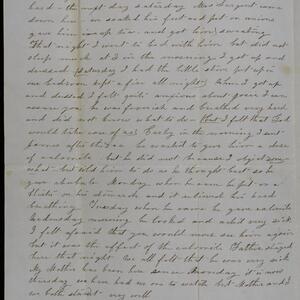 hard - the next day Saturday Mrs Sargent came
down here - on soaked his feet and put on onions
give him tea and got him sweating
That night I went to bed with him but did not
sleep much at 3 in the morning I got up and
dressed Saturday I had the little stove put up in
our bedroom kept a fire all night when I got up
and dressed I felt quite anxious about posie I can
assure you he was feverish and breathed very hard
and did not know what to do - that I felt that God
would take care of us Early in the morning I sent
he wanted to give him a dose
of calomile but he did not because I object some
what - but told him to do as he thought best so he
gave Monday when he came he put on a
on his stomach and it relieved his hard
breathing Tuesday when he came he gave calomile
Wednesday morning he looked and was very sick
I felt afraid that you would never see him again
but it was the effect of the calomile Father stayed
here that night We all felt that he was very sick
My Mother has been here since Monday it is now
thursday we have had no one to watch but Mother and I
we both stand it very well